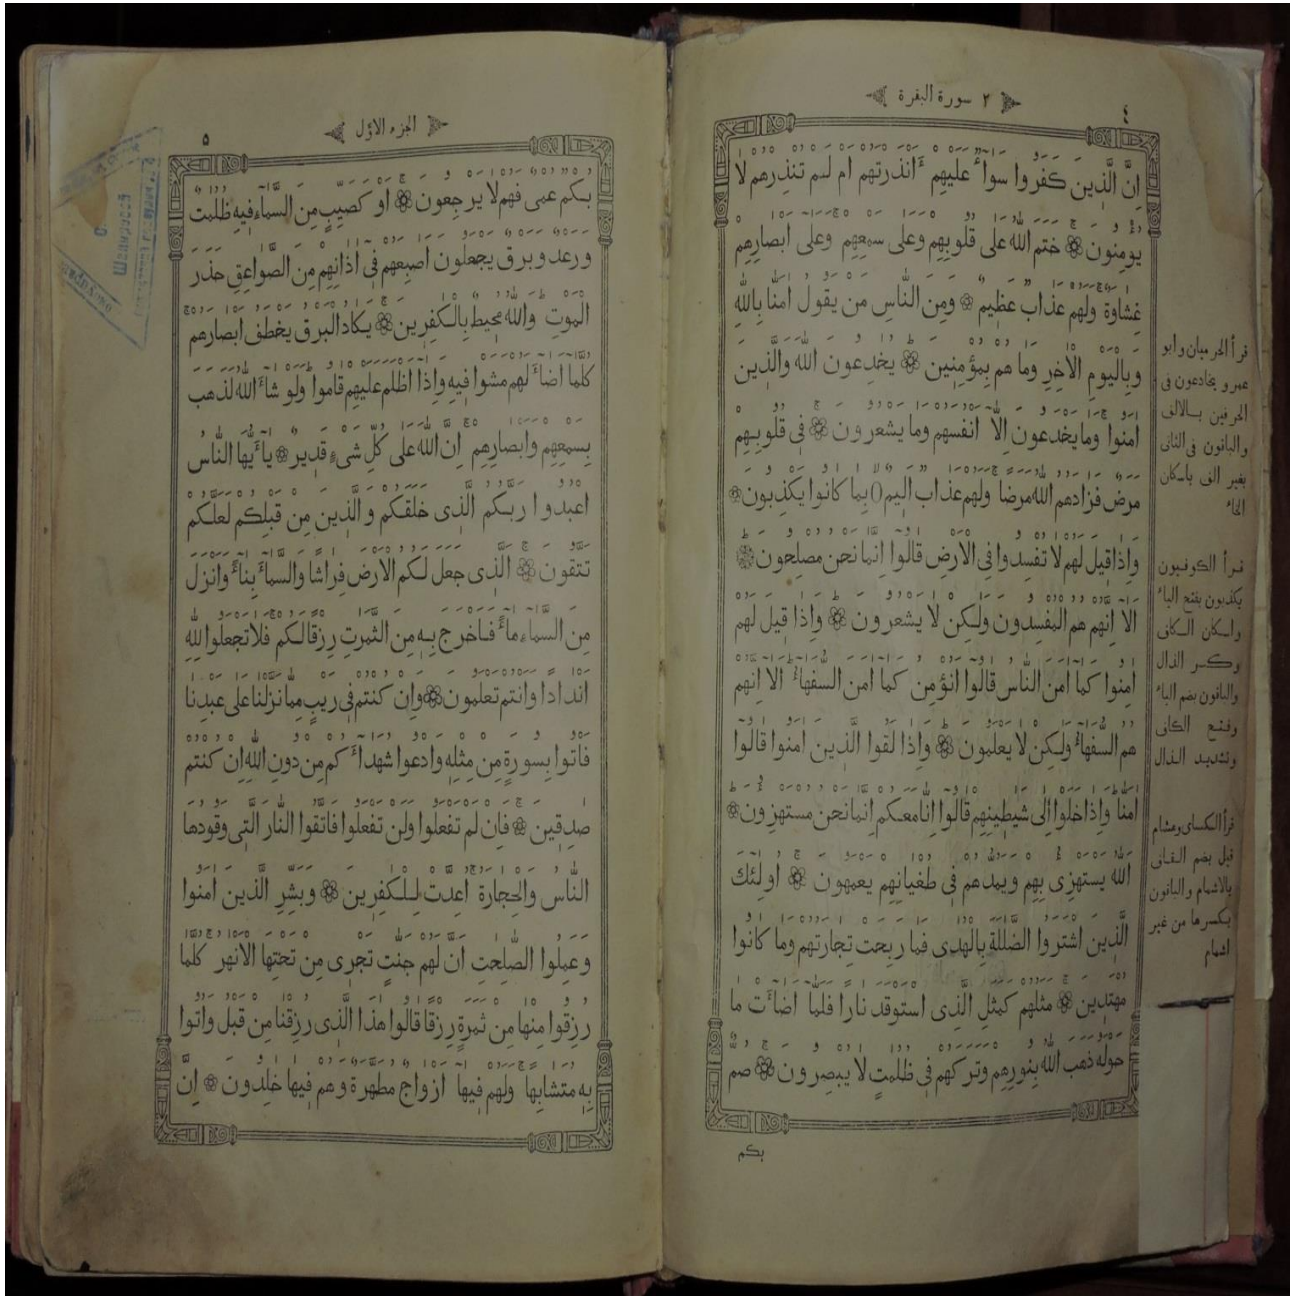 ٤
٢ سورة البقرة
اِنَّ الَّذِينَ كَفَرُوا سَوَآءٌ عَلَيْهِمْ ءَاَنْذَرْتَهُمْ اَمْ لَمْ تُنْذِرْهُمْ لَا
يُؤْمِنُونَ ۝ خَتَمَ اللّٰهُ عَلٰى قُلُوبِهِمْ وَعَلٰى سَمْعِهِمْ وَعَلٰٓى اَبْصَارِهِمْ
غِشَاوَةٌ وَلَهُمْ عَذَابٌ عَظِيمٌ ۝ وَمِنَ النَّاسِ مَنْ يَقُولُ اٰمَنَّا بِاللّٰهِ
وَبِالْيَوْمِ الْاٰخِرِ وَمَا هُمْ بِمُؤْمِنِينَ ۝ يُخٰدِعُونَ اللّٰهَ وَالَّذِينَ
اٰمَنُوا وَمَا يَخْدَعُونَ اِلَّآ اَنْفُسَهُمْ وَمَا يَشْعُرُونَ ۝ فِى قُلُوبِهِمْ
مَرَضٌ فَزَادَهُمُ اللّٰهُ مَرَضًا وَلَهُمْ عَذَابٌ اَلِيمٌ () بِمَا كَانُوا يَكْذِبُونَ ۝
وَاِذَا قِيلَ لَهُمْ لَا تُفْسِدُوا فِى الْاَرْضِ قَالُوٓا اِنَّمَا نَحْنُ مُصْلِحُونَ ۝
اَلَآ اِنَّهُمْ هُمُ الْمُفْسِدُونَ وَلٰكِنْ لَا يَشْعُرُونَ ۝ وَاِذَا قِيلَ لَهُمْ
اٰمِنُوا كَمَآ اٰمَنَ النَّاسُ قَالُوٓا اَنُؤْمِنُ كَمَآ اٰمَنَ السُّفَهَآءُ اَلَآ اِنَّهُمْ
هُمُ السُّفَهَآءُ وَلٰكِنْ لَا يَعْلَمُونَ ۝ وَاِذَا لَقُوا الَّذِينَ اٰمَنُوا قَالُوٓا
اٰمَنَّا وَاِذَا خَلَوْا اِلٰى شَيٰطِينِهِمْ قَالُوٓا اِنَّا مَعَكُمْ اِنَّمَا نَحْنُ مُسْتَهْزِؤُنَ ۝
اَللّٰهُ يَسْتَهْزِئُ بِهِمْ وَيَمُدُّهُمْ فِى طُغْيَانِهِمْ يَعْمَهُونَ ۝ اُولٰٓئِكَ
الَّذِينَ اشْتَرَوُا الضَّلٰلَةَ بِالْهُدٰى فَمَا رَبِحَتْ تِجَارَتُهُمْ وَمَا كَانُوا
مُهْتَدِينَ ۝ مَثَلُهُمْ كَمَثَلِ الَّذِى اسْتَوْقَدَ نَارًا فَلَمَّآ اَضَآءَتْ مَا
حَوْلَهُ ذَهَبَ اللّٰهُ بِنُورِهِمْ وَتَرَكَهُمْ فِى ظُلُمٰتٍ لَا يُبْصِرُونَ ۝ صُمٌّ
بكم
قرأ الحرميان وابو
عمرو يخادعون فى
الحرفين بالالف
والباقون فى الثانى
بغير الف باسكان
الخاء
قرأ الكوفيون
يكذبون بفتح الياء
واسكان الكاف
وكسر الذال
والباقون بضم الياء
وفتح الكاف
وتشديد الذال
قرأ الكساى وهشام
قيل بضم القاف
بالاشمام والباقون
بكسرها من غير
اشمام
الجزء الاوّل
٥
بُكْمٌ عُمْىٌ فَهُمْ لَا يَرْجِعُونَ ۝ اَوْ كَصَيِّبٍ مِنَ السَّمَآءِ فِيهِ ظُلُمٰتٌ
وَرَعْدٌ وَبَرْقٌ يَجْعَلُونَ اَصَابِعَهُمْ فِىٓ اٰذَانِهِمْ مِنَ الصَّوَاعِقِ حَذَرَ
الْمَوْتِ وَاللّٰهُ مُحِيطٌ بِالْكٰفِرِينَ ۝ يَكَادُ الْبَرْقُ يَخْطَفُ اَبْصَارَهُمْ
كُلَّمَآ اَضَآءَ لَهُمْ مَشَوْا فِيهِ وَاِذَآ اَظْلَمَ عَلَيْهِمْ قَامُوا وَلَوْ شَآءَ اللّٰهُ لَذَهَبَ
بِسَمْعِهِمْ وَاَبْصَارِهِمْ اِنَّ اللّٰهَ عَلٰى كُلِّ شَىْءٍ قَدِيرٌ ۝ يَآ اَيُّهَا النَّاسُ
اعْبُدُوا رَبَّكُمُ الَّذِى خَلَقَكُمْ وَالَّذِينَ مِنْ قَبْلِكُمْ لَعَلَّكُمْ
تَتَّقُونَ ۝ الَّذِى جَعَلَ لَكُمُ الْاَرْضَ فِرَاشًا وَالسَّمَآءَ بِنَآءً وَاَنْزَلَ
مِنَ السَّمَآءِ مَآءً فَاَخْرَجَ بِهِ مِنَ الثَّمَرٰتِ رِزْقًا لَكُمْ فَلَا تَجْعَلُوا لِلّٰهِ
اَنْدَادًا وَاَنْتُمْ تَعْلَمُونَ ۝ وَاِنْ كُنْتُمْ فِى رَيْبٍ مِمَّا نَزَّلْنَا عَلٰى عَبْدِنَا
فَاْتُوا بِسُورَةٍ مِنْ مِثْلِهِ وَادْعُوا شُهَدَآءَكُمْ مِنْ دُونِ اللّٰهِ اِنْ كُنْتُمْ
صٰدِقِينَ ۝ فَاِنْ لَمْ تَفْعَلُوا وَلَنْ تَفْعَلُوا فَاتَّقُوا النَّارَ الَّتِى وَقُودُهَا
النَّاسُ وَالْحِجَارَةُ اُعِدَّتْ لِلْكٰفِرِينَ ۝ وَبَشِّرِ الَّذِينَ اٰمَنُوا
وَعَمِلُوا الصّٰلِحٰتِ اَنَّ لَهُمْ جَنّٰتٍ تَجْرِى مِنْ تَحْتِهَا الْاَنْهٰرُ كُلَّمَا
رُزِقُوا مِنْهَا مِنْ ثَمَرَةٍ رِزْقًا قَالُوا هٰذَا الَّذِى رُزِقْنَا مِنْ قَبْلُ وَاُتُوا
بِهِ مُتَشَابِهًا وَلَهُمْ فِيهَآ اَزْوَاجٌ مُطَهَّرَةٌ وَهُمْ فِيهَا خٰلِدُونَ ۝ اِنَّ